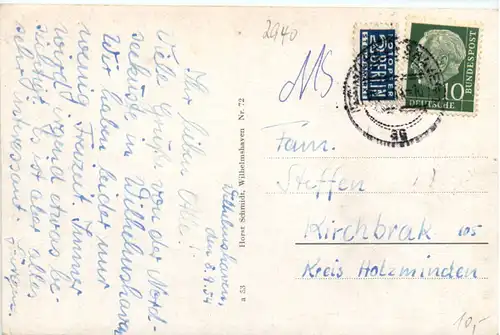 2940
Wilhelmshaven,
den 8.9.54
Ihr lieben Alle!
Viele Grüße von der Nord-
seeküste in Wilhelmshaven.
Wir haben leider nur
wenig Freizeit. Immer
wird irgend etwas be-
sichtigt. Es ist aber alles
sehr interessant.
Jürgen.
a 53 Horst Schmidt, Wilhelmshaven Nr. 72
NOTOPFER
2 BERLIN
STEUERMARKE
DEUTSCHE
BUNDESPOST
10
Fam.
Steffen
Kirchbrak
Kreis Holzminden
10,-